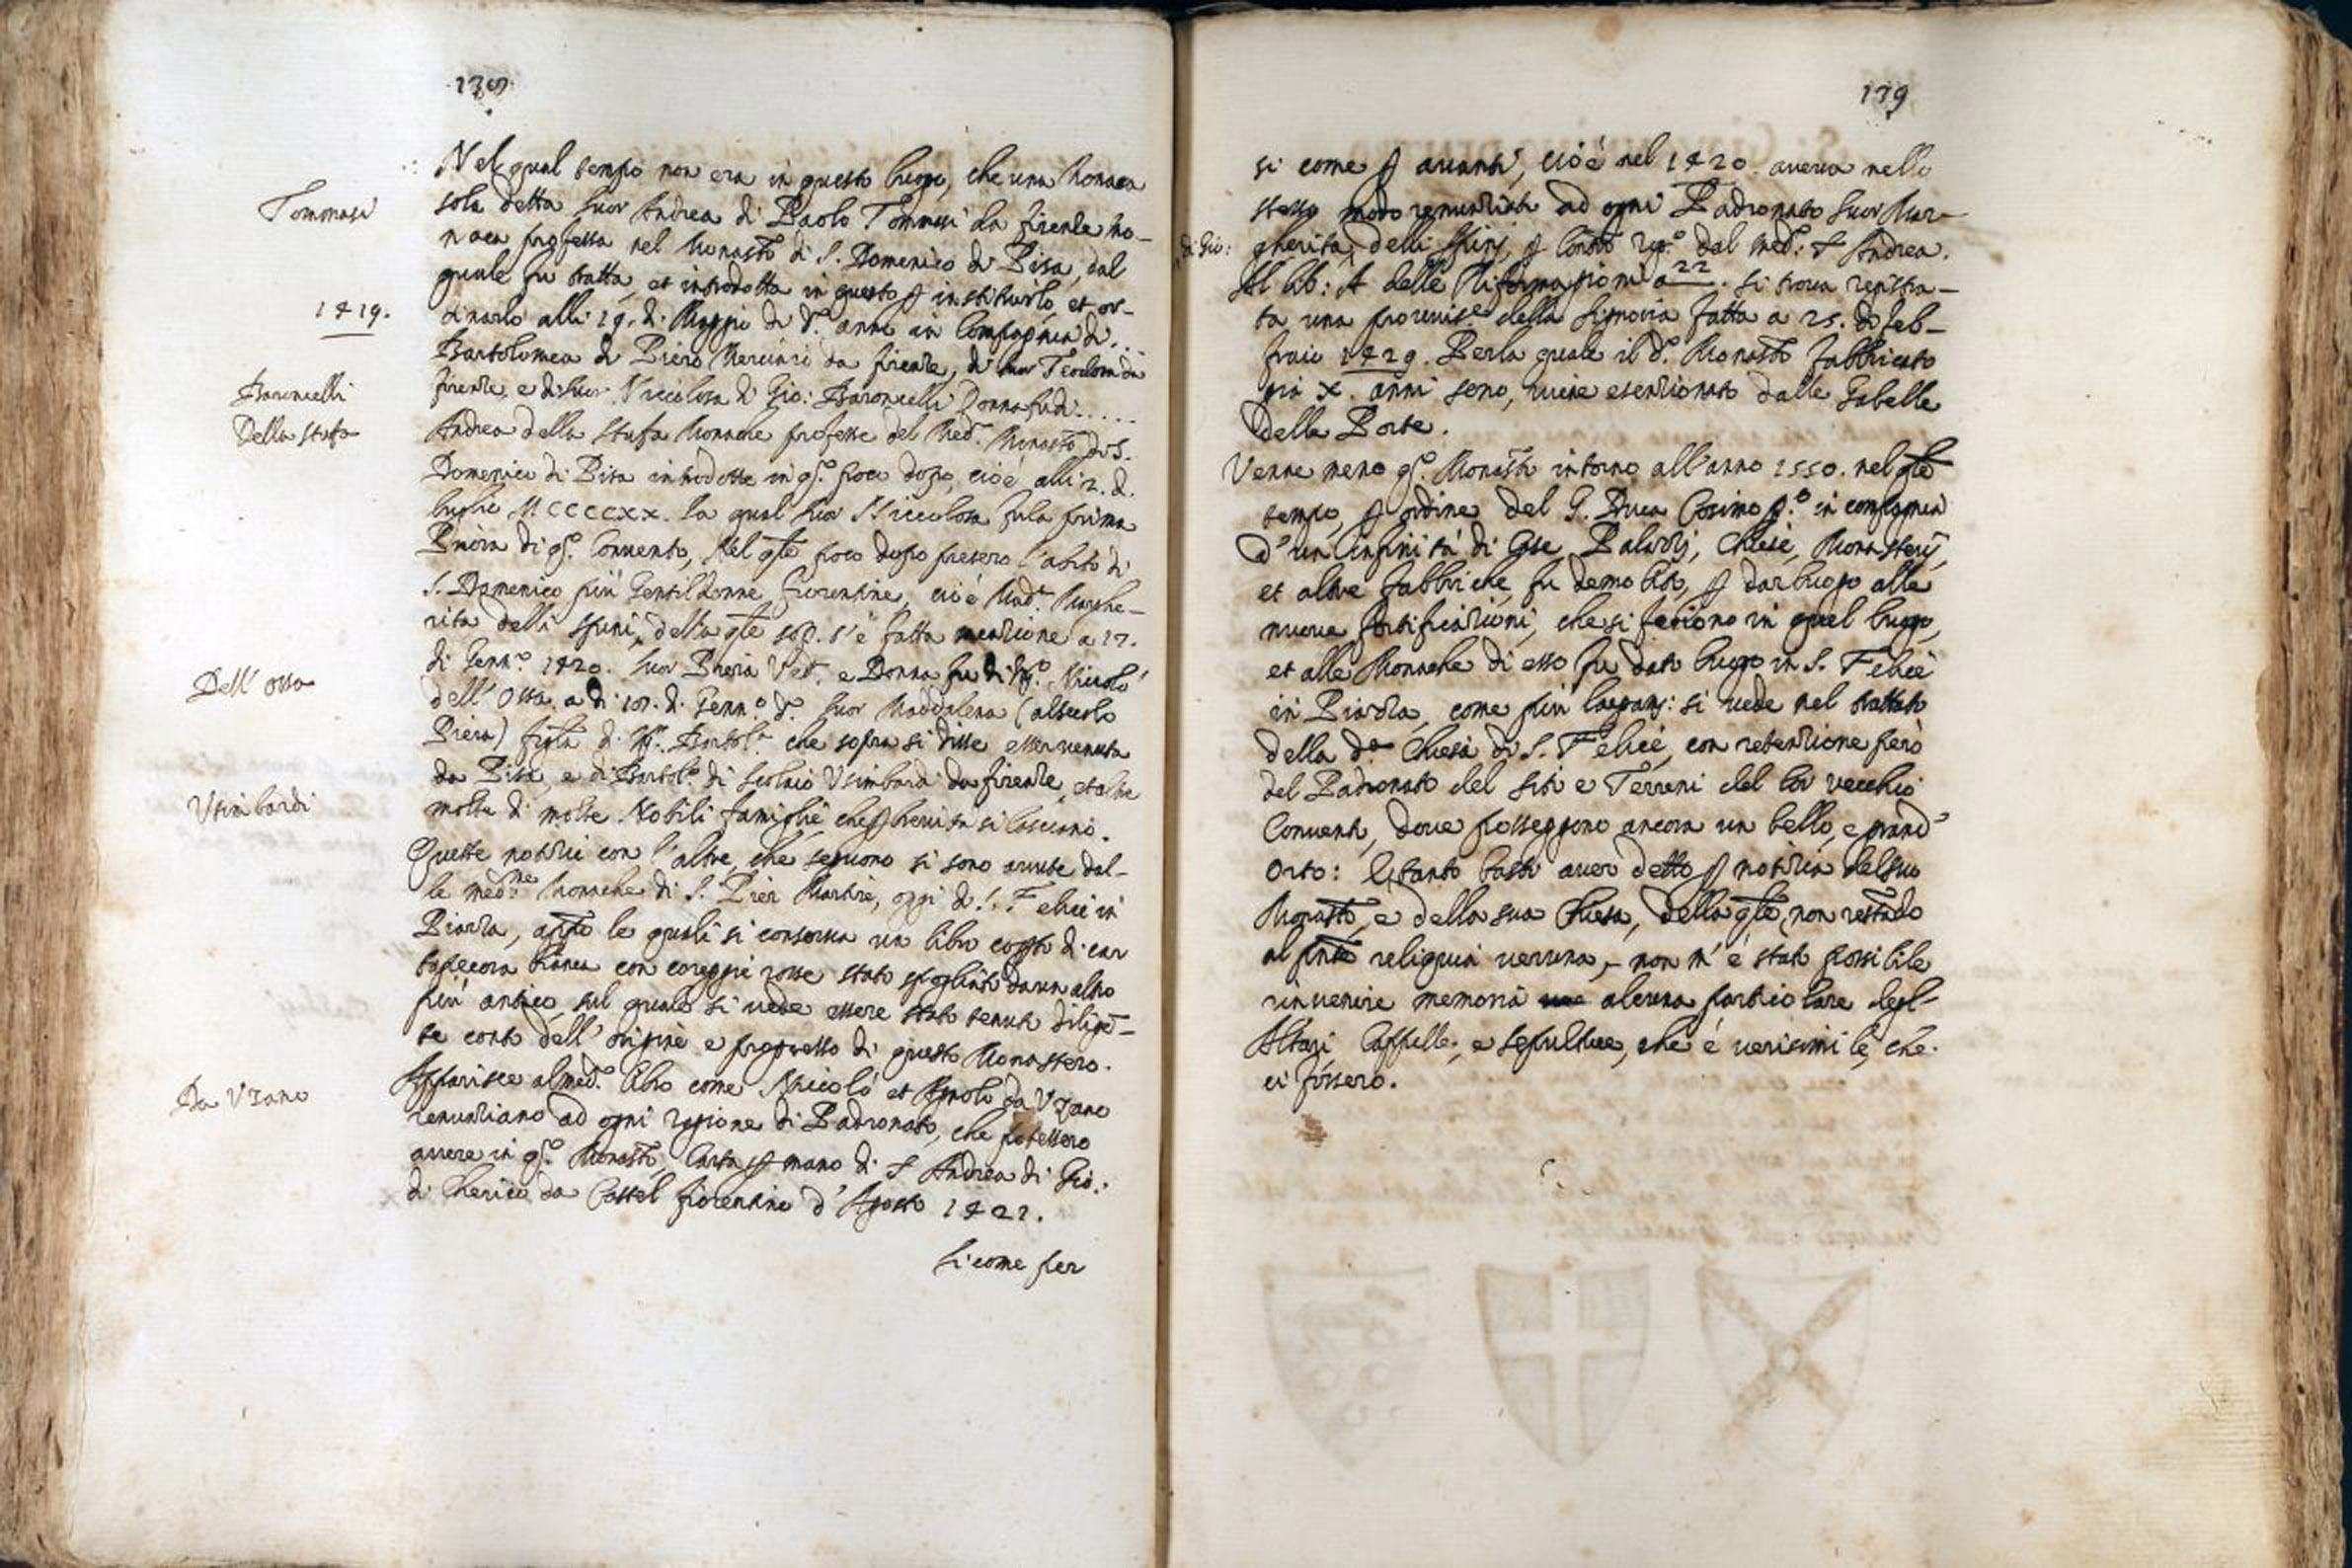 138
Nel qual tempo non era in questo luogo, che una Monaca
Tommasi
sola detta Suor Andrea di Paolo Tommasi da firenze mo-
naca professa nel Monast.o di S. Domenico di Pisa, dal
quale fu tratta, et introdotta in questo p instituirlo, et or-
1419.
dinarlo alli 19. di Maggio di d.o anno in Compagnia di...
Bartolomea di Piero Mercini da firenze, di Suor Teodora da
Baroncelli
firenze, e di Suor Niccolosa di Gio: Baroncelli Donna fu di....
Della Stufa
Andrea della Stufa Monache professe del Med.o Monast.o di S.
Domenico di Pisa introdotte in q.o poco dopo, cioè alli 2. d.
luglio MCCCCXX. la qual Suor Niccolosa fu la prima
Priora di q.o Convento, Nel q̃le poco dopo presero l'abito di
S. Domenico più Gentildonne fiorentine, cioè Mad.a Marghe-
rita delli Spini, della q̃le sop. s'è fatta menzione a 17.
di Genn.o 1420. Suor Piera Ved.a e Donna fu di Niccolò
Dell' ossa
dell' Ossa a di 18. d. Genn.o d.o Suor Maddalena (al secolo
Piera) figla d. Bartol.a che sopra si disse esser venuta
da Pisa, e di Bartol.o di Scolaio Usimbardi da firenze, et altre
Usimbardi
molte di molte Nobili famiglie che p brevità si lasciano.
Queste notizie con l'altre, che seguono si sono avute dal-
le med.me Monache di S. Pier Martire, oggi di S. Felice in
Piazza, app̃o le quali si conserva un libro cop.to di car
tapecora bianca con coreggie rosse stato spogliato da un altro
più antico, sul quale si vede essere stato tenuto diligẽ-
te conto dell' origine e progresso di questo Monastero.
Apparisce al med.o libro come Niccolò et Agnolo da Uzano
Da Uzano
renunziano ad ogni ragione di Padronato, che potessero
avere in q.o Monast.o, Carta p mano di S Andrea di Gio:
di Cherico da Castel fiorentino d' Agosto 1421.
Sicome per
139
si come p avanti, cioè nel 1420. aveva nello
stesso modo renunziato ad ogni Padronato Suor Mar-
di Gio:
gherita delli Spini, p Contr.o rog.o dal med.o S Andrea.
Al lib: A delle Riformagioni a 22. si trova registra-
ta una provvis.e della Signoria fatta a 25. di feb-
fraio 1429. Per la quale il d.o Monast.o fabbricato
già X. anni sono, viene esenzionato dalle Gabelle
delle Porte.
Venne meno q.o Monast.o intorno all'anno 1550. nel q̃le
tempo, p ordine del G. Duca Cosimo p.o in compagnia
d'un infinità di Case, Palazzi, Chiese, Monasterij,
et altre fabbriche, fu demolito, p dar luogo alle
nuove fortificazioni, che si feciono in quel luogo,
et alle Monache di esso fu dato luogo in S. Felice
in Piazza, come più largam: si vede nel trattato
della d.a Chiesa di S. Felice, con retenzione però
del Padronato del sito e Terreni del lor vecchio
Convento, dove posseggono ancora un bello, e grand'
Orto: E tanto basti aver detto p notizia del suo
Monast.o, e della sua Chiesa, della q̃le, non restãdo
al pñte reliquia veruna, non m' è stato possibile
rinvenire memoria alcuna particolare degl'
Altari Cappelle, e sepolture, che è verisimile, che
ci fossero.